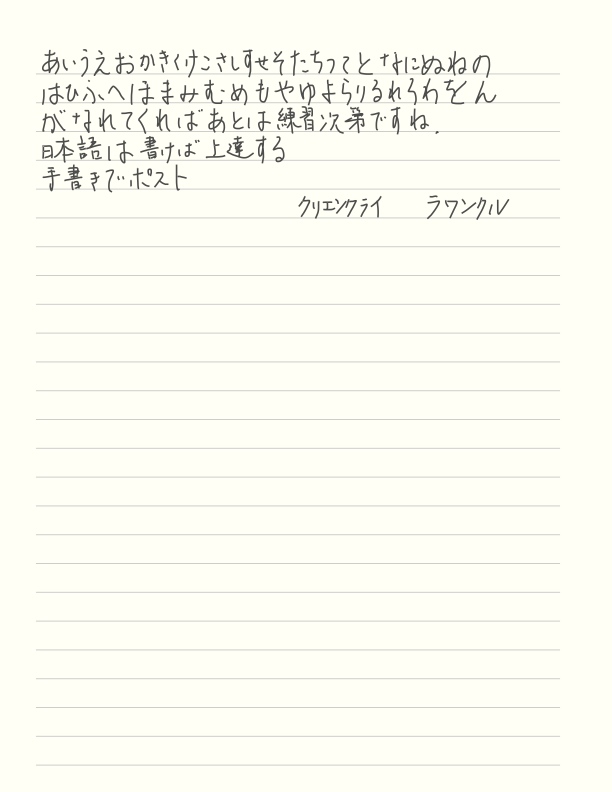 あいうえおかきくけこさしすせそたちつてとなにぬねの
はひふへほまみむめもやゆよらりるれろわをん
がなれてくればあとは練習次第ですね.
日本語は書けば上達する
手書きでポスト
クリエンクライ ラワンクル